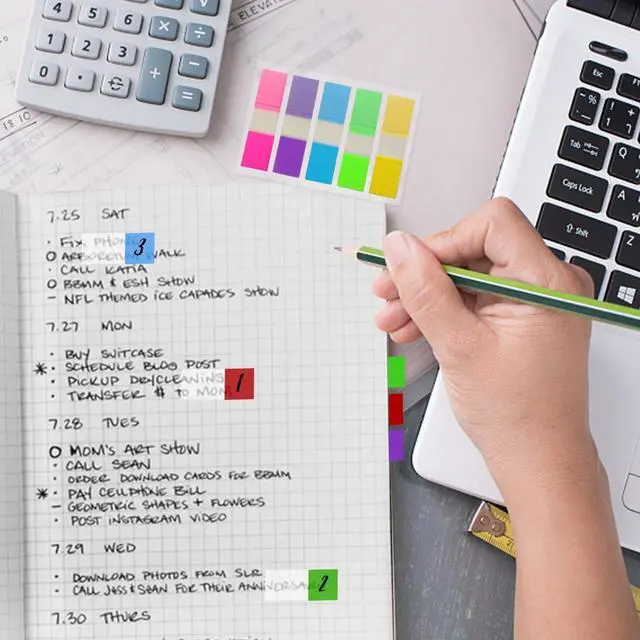 4 5 6 × √
1 2 3 × ÷
0 · + −
=
ELEVATION
18 10
7.25 SAT
· FIX PHONE 3
O ARBORETUM WALK
· CALL KATIA
O BBMM & ESH SHOW
– NFL THEMED ICE CAPADES SHOW
7.27 MON
· BUY SUITCASE
* · SCHEDULE BLOG POST
· PICKUP DRYCLEANING 1
· TRANSFER $ TO MOM
7.28 TUES
O MOM'S ART SHOW
· CALL SEAN
· ORDER DOWNLOAD CARDS FOR BBMM
* · PAY CELLPHONE BILL
– GEOMETRIC SHAPES + FLOWERS
· POST INSTAGRAM VIDEO
7.29 WED
· DOWNLOAD PHOTOS FROM SLR
· CALL JESS & SEAN FOR THEIR ANNIVERSARY 2
7.30 THURS
Esc
~ `
! 1
Tab
Q
Caps Lock
A
⇧ Shift